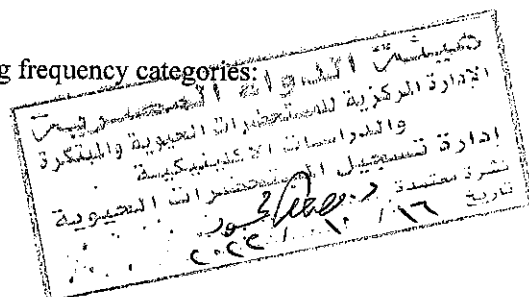 g frequency categories:
هيئة الدواء المصرية
الإدارة المركزية للمستحضرات الحيوية والمبتكرة
والدراسات الاكلينيكية
إدارة تسجيل المستحضرات الحيوية
نشرة معتمدة د.
تاريخ ١٦ / ١٠ / ٢٠٢٢